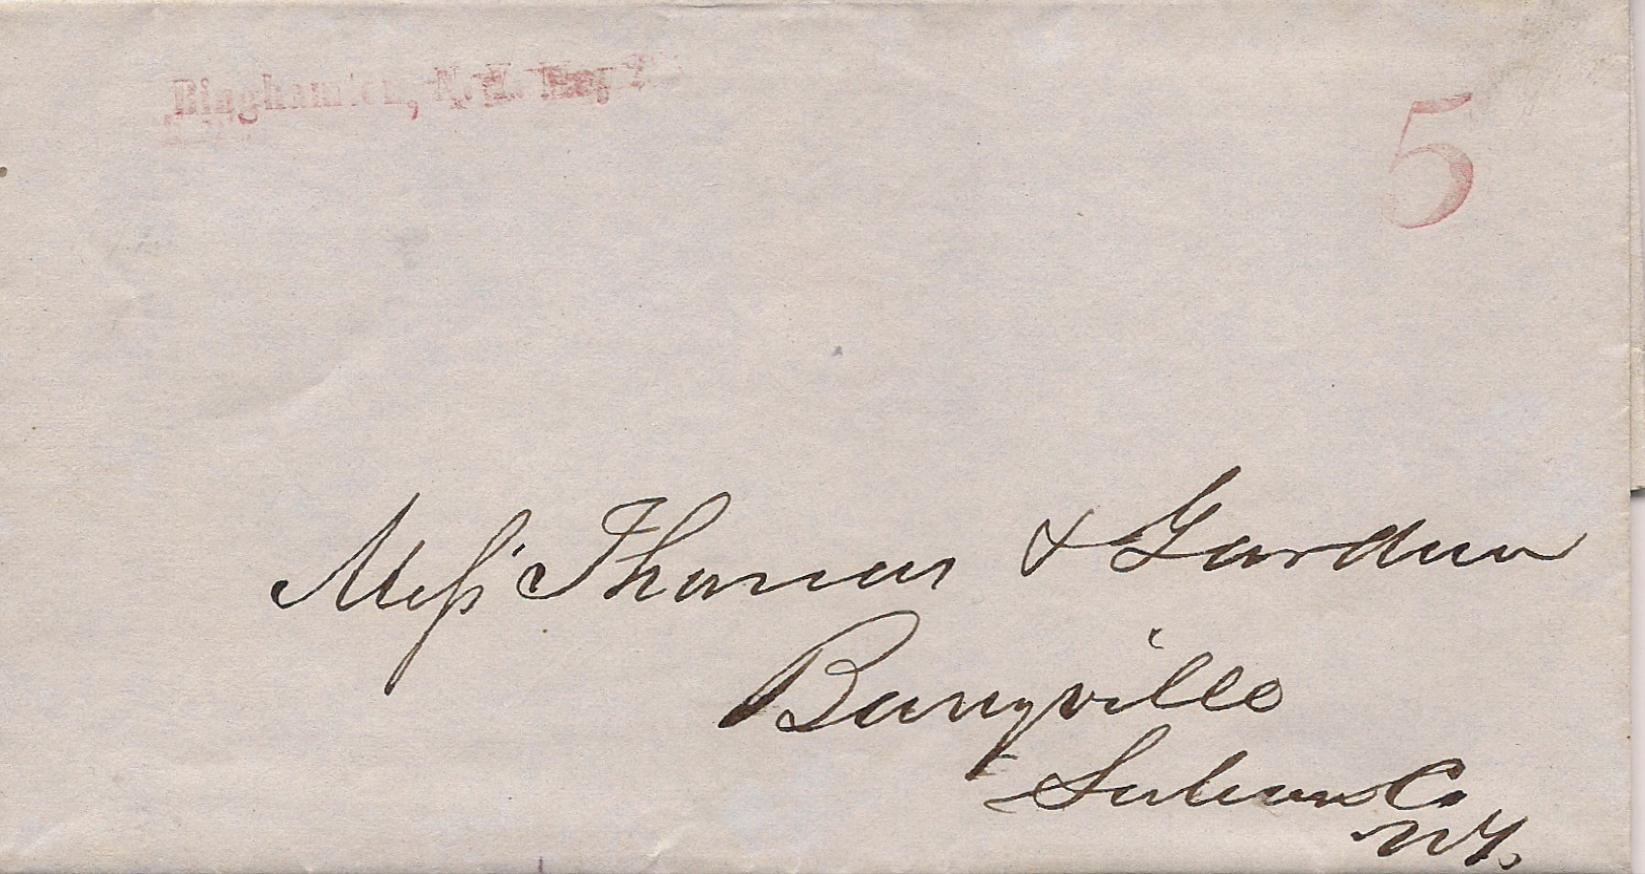 Binghamton, N.Y.
5
Mess Thomas & Gardner
Barryville
Sullivan Co
NY.